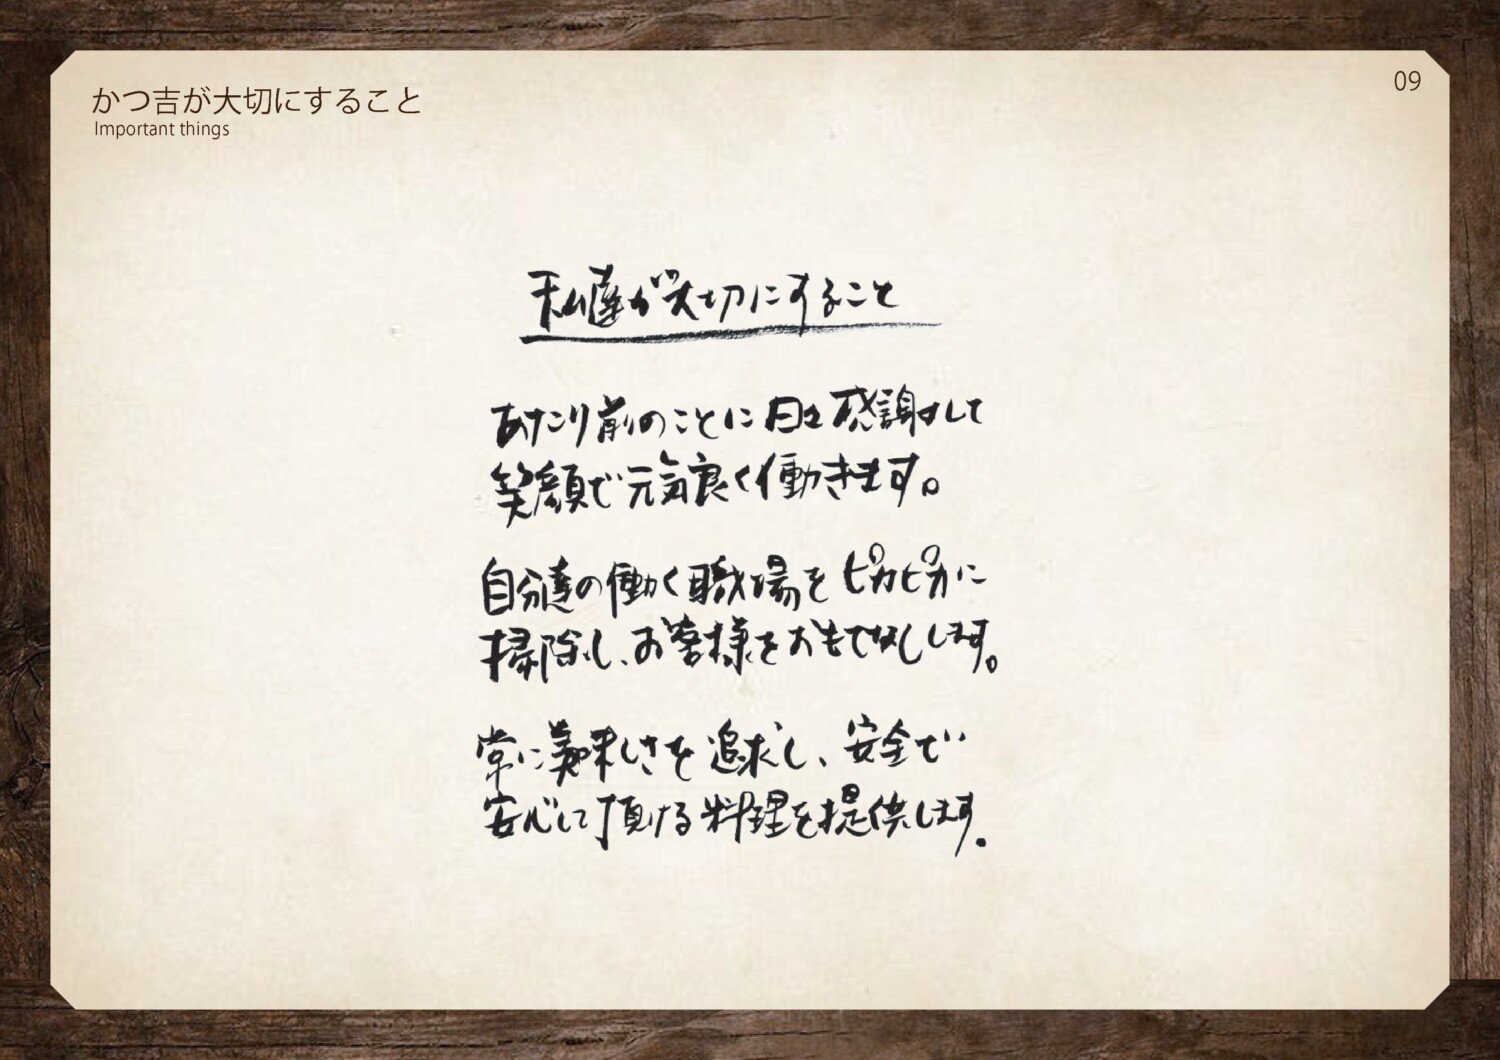 かつ吉が大切にすること
Important things
09
私達が大切にすること
あたり前のことに日々感謝して
笑顔で元気良く働きます。
自分達の働く職場をピカピカに
掃除し、お客様をおもてなしします。
常に美味しさを追求し、安全で
安心して頂ける料理を提供します。